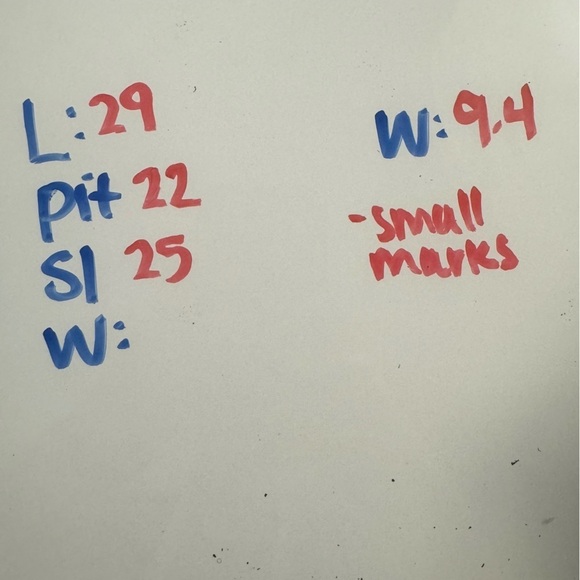 L: 29
pit 22
Sl 25
W:
W: 9.4
-small
marks